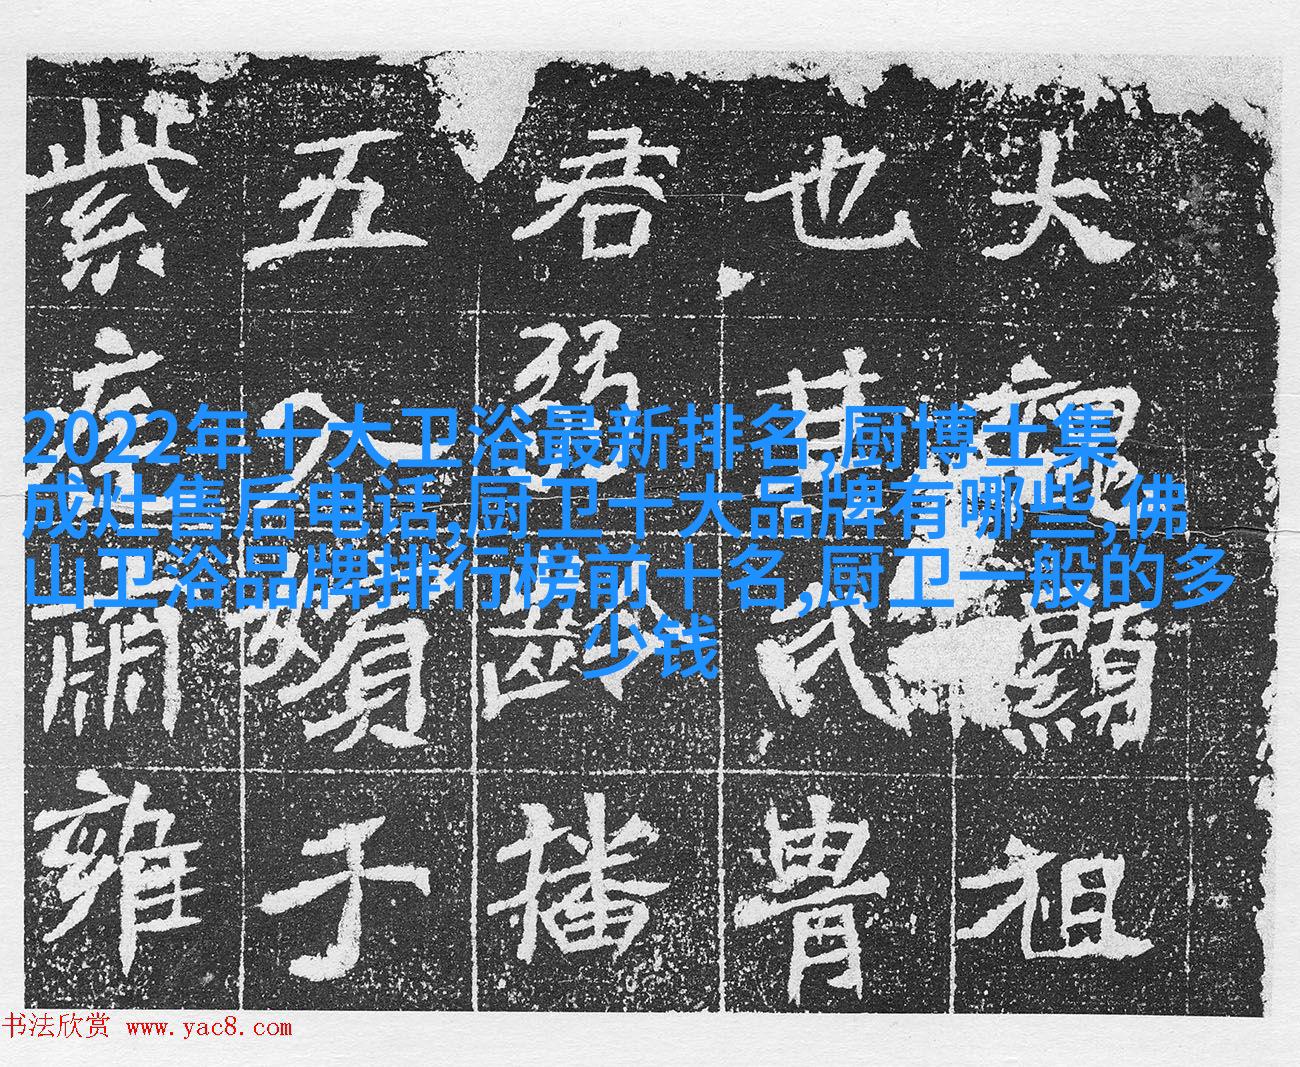 大顯祖
也其氏胄
君弱齡播
五子
紫庭肅雍
2022年十大卫浴最新排名,厨博士集
成灶售后电话,厨卫十大品牌有哪些,佛
山卫浴品牌排行榜前十名,厨卫一般的多
少钱
书法欣赏 www.yac8.com